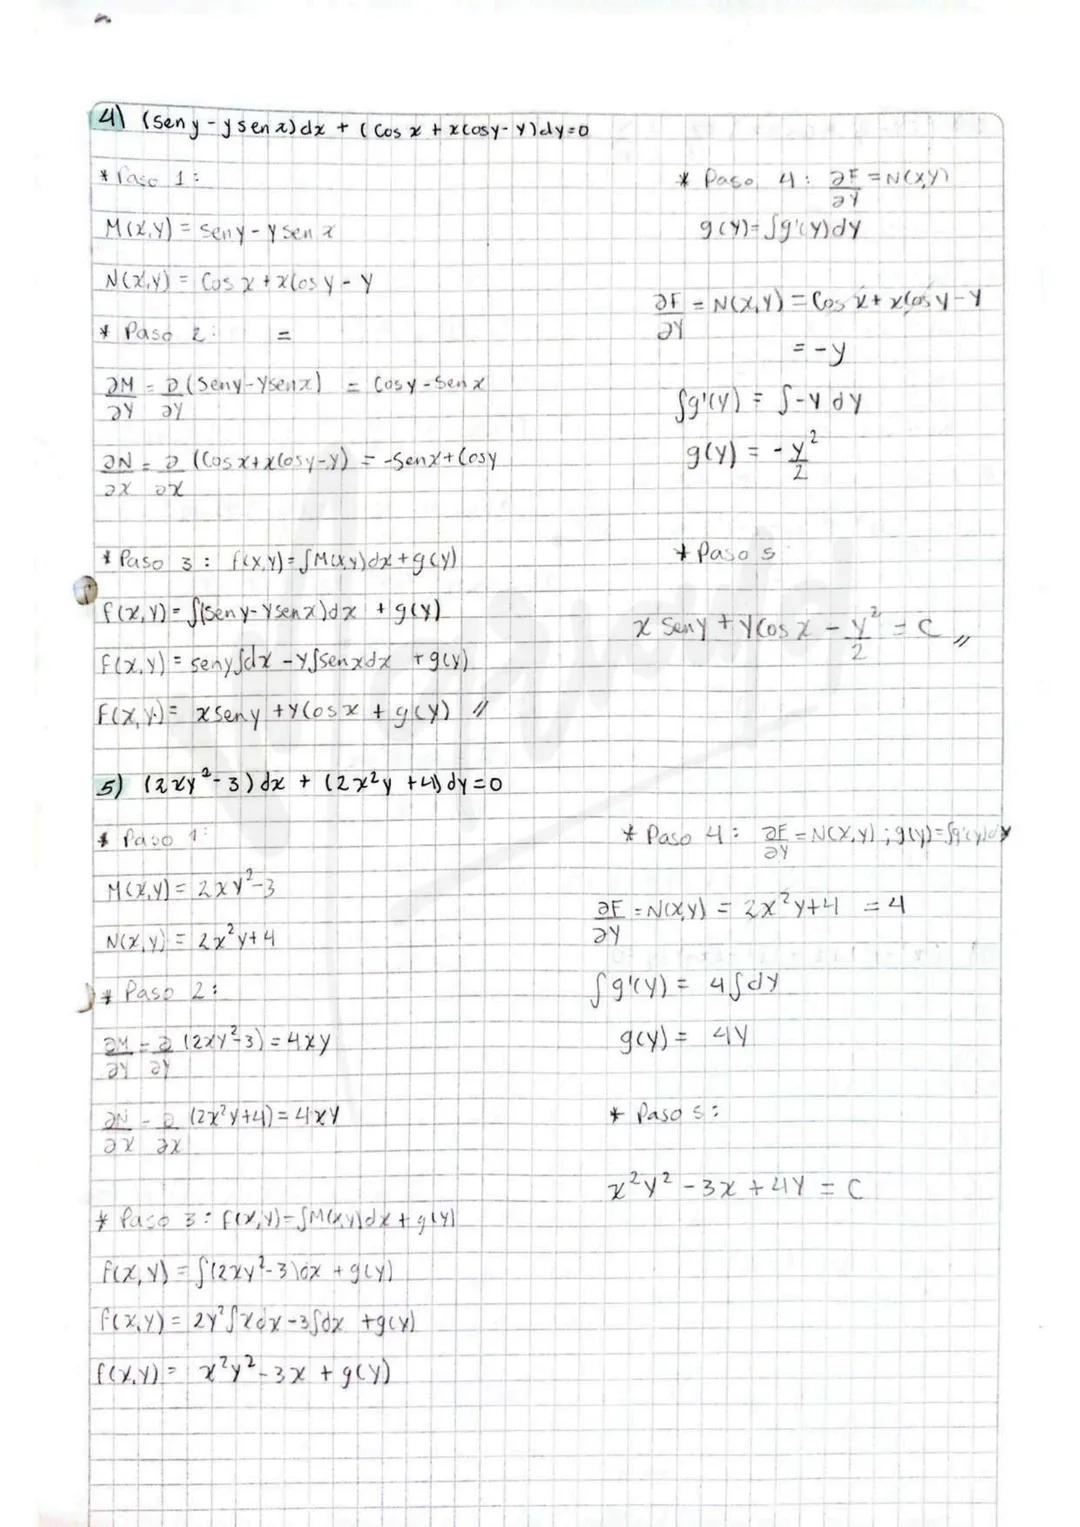 4) (sen y - y sen x) dx + (Cos x + x cosy - y) dy = 0
* Paso 1:
M(x,y) = seny - y sen x
N(x,y) = Cos x + x Cos y - y
* Paso 2: =
∂M/∂y = ∂/∂y (Seny - ysenx) = Cosy - Sen x
∂N/∂x = ∂/∂x (Cosx + xCosy - y) = -Senx + Cosy
* Paso 3: f(x,y) = ∫M(x,y)dx + g(y)
f(x,y) = ∫(sen y - ysenx)dx + g(y)
f(x,y) = seny∫dx - y∫senxdx + g(y)
F(x,y) = x seny + y Cosx + g(y) //
* Paso 4: ∂F/∂y = N(x,y)
g(y) = ∫g'(y)dy
∂F/∂y = N(x,y) = Cos x + x Cos y - y
= -y
∫g'(y) = ∫-y dy
g(y) = -y²/2
* Paso 5
x Seny + y Cos x - y²/2 = C //
5) (2xy² - 3) dx + (2x²y + 4) dy = 0
* Paso 1:
M(x,y) = 2xy² - 3
N(x,y) = 2x²y + 4
* Paso 2:
∂M/∂y = ∂/∂y (2xy² - 3) = 4xy
∂N/∂x = ∂/∂x (2x²y + 4) = 4xy
* Paso 3: f(x,y) = ∫M(x,y)dx + g(y)
f(x,y) = ∫(2xy² - 3)dx + g(y)
f(x,y) = 2y²∫xdx - 3∫dx + g(y)
f(x,y) = x²y² - 3x + g(y)
* Paso 4: ∂F/∂y = N(x,y) ; g(y) = ∫g'(y)dy
∂F/∂y = N(x,y) = 2x²y + 4 = 4
∫g'(y) = 4∫dy
g(y) = 4y
* Paso 5:
x²y² - 3x + 4y = C